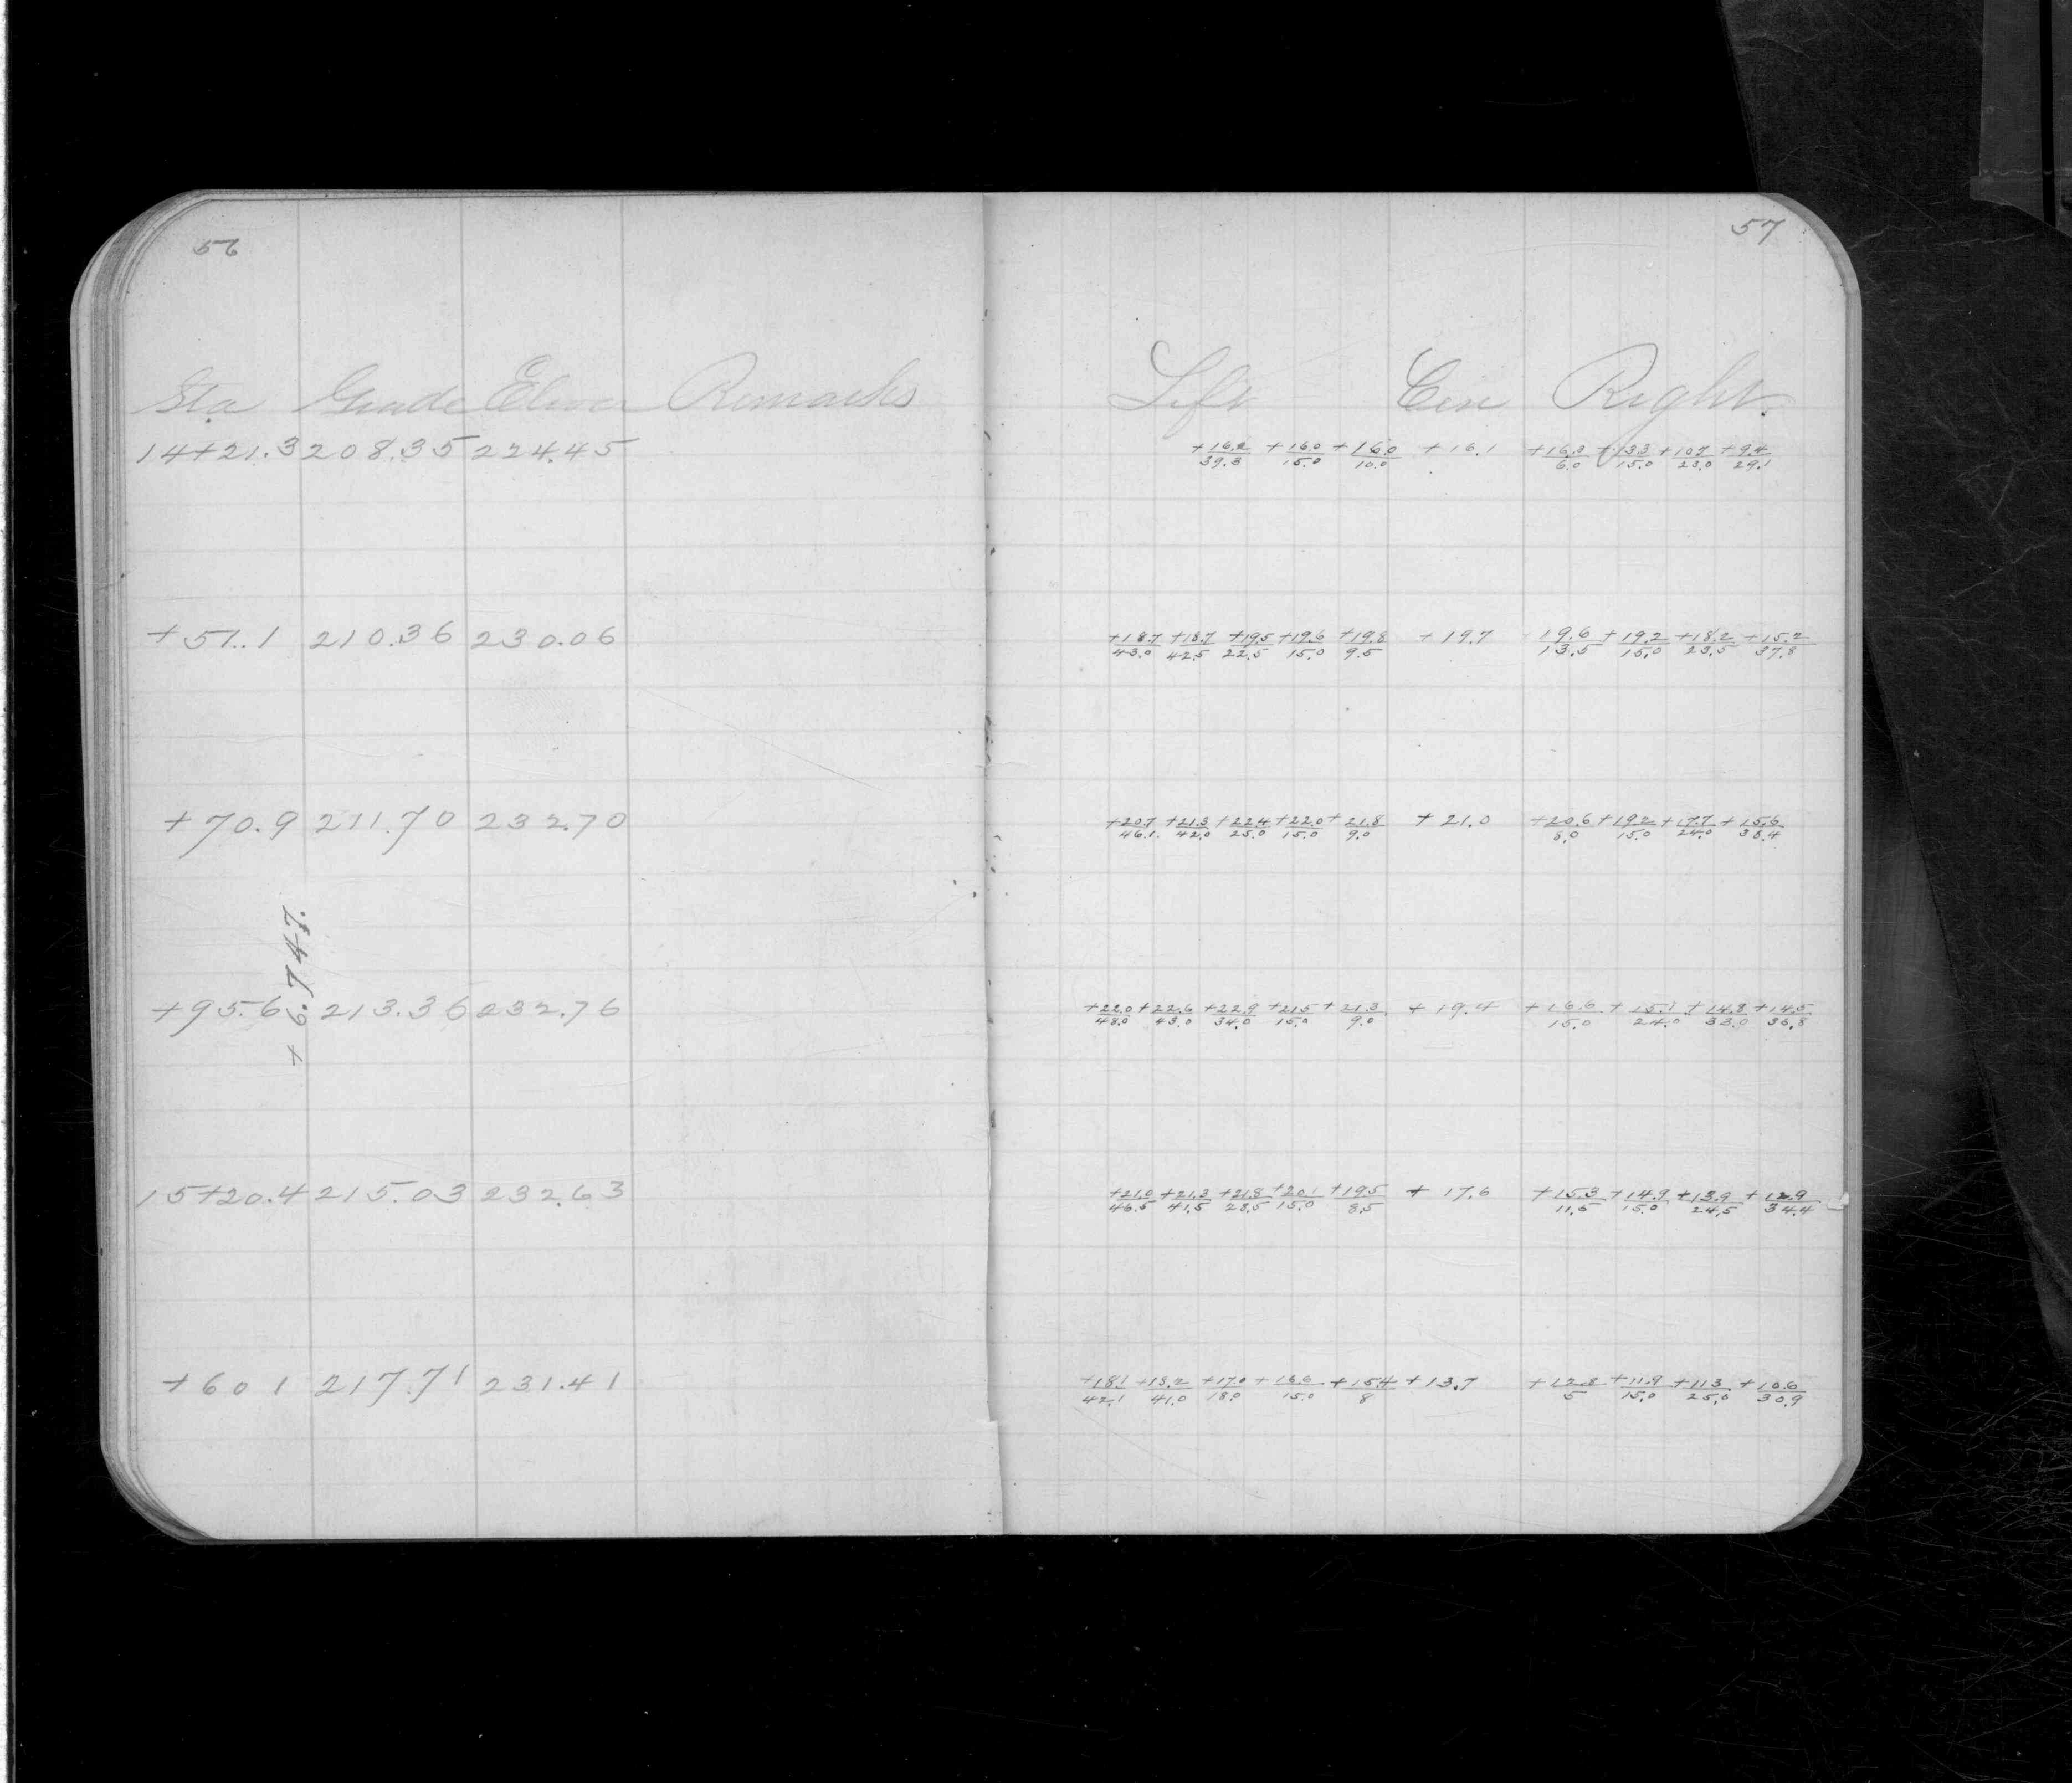 56
Sta Grade Elevn Remarks
14+21.3 208.35 224.45
+51.1 210.36 230.06
+70.9 211.70 232.70
+6.747.
+95.6 213.36 232.76
15+20.4 215.03 232.63
+60 1 217.71 231.41
57
Left Cen Right.
+16.2/39.3 +16.0/15.0 +16.0/10.0 +16.1 +16.3/6.0 +13.3/15.0 +10.7/23.0 +9.4/29.1
+18.7/43.0 +18.7/42.5 +19.5/22.5 +19.6/15.0 +19.8/9.5 +19.7 19.6/13.5 +19.2/15.0 +18.2/23.5 +15.2/37.8
+20.7/46.1 +21.3/42.0 +22.4/25.0 +22.0/15.0 +21.8/9.0 +21.0 +20.6/8.0 +19.2/15.0 +17.7/24.0 +15.6/38.4
+22.0/48.0 +22.6/43.0 +22.9/34.0 +21.5/15.0 +21.3/9.0 +19.4 +16.6/15.0 +15.1/24.0 +14.8/33.0 +14.5/36.8
+21.0/46.5 +21.3/41.5 +21.8/28.5 +20.1/15.0 +19.5/8.5 +17.6 +15.3/11.5 +14.9/15.0 +13.9/24.5 +12.9/34.4
+18.1/42.1 +18.2/41.0 +17.0/18.0 +16.6/15.0 +15.4/8 +13.7 +12.8/5 +11.9/15.0 +11.3/25.0 +10.6/30.9